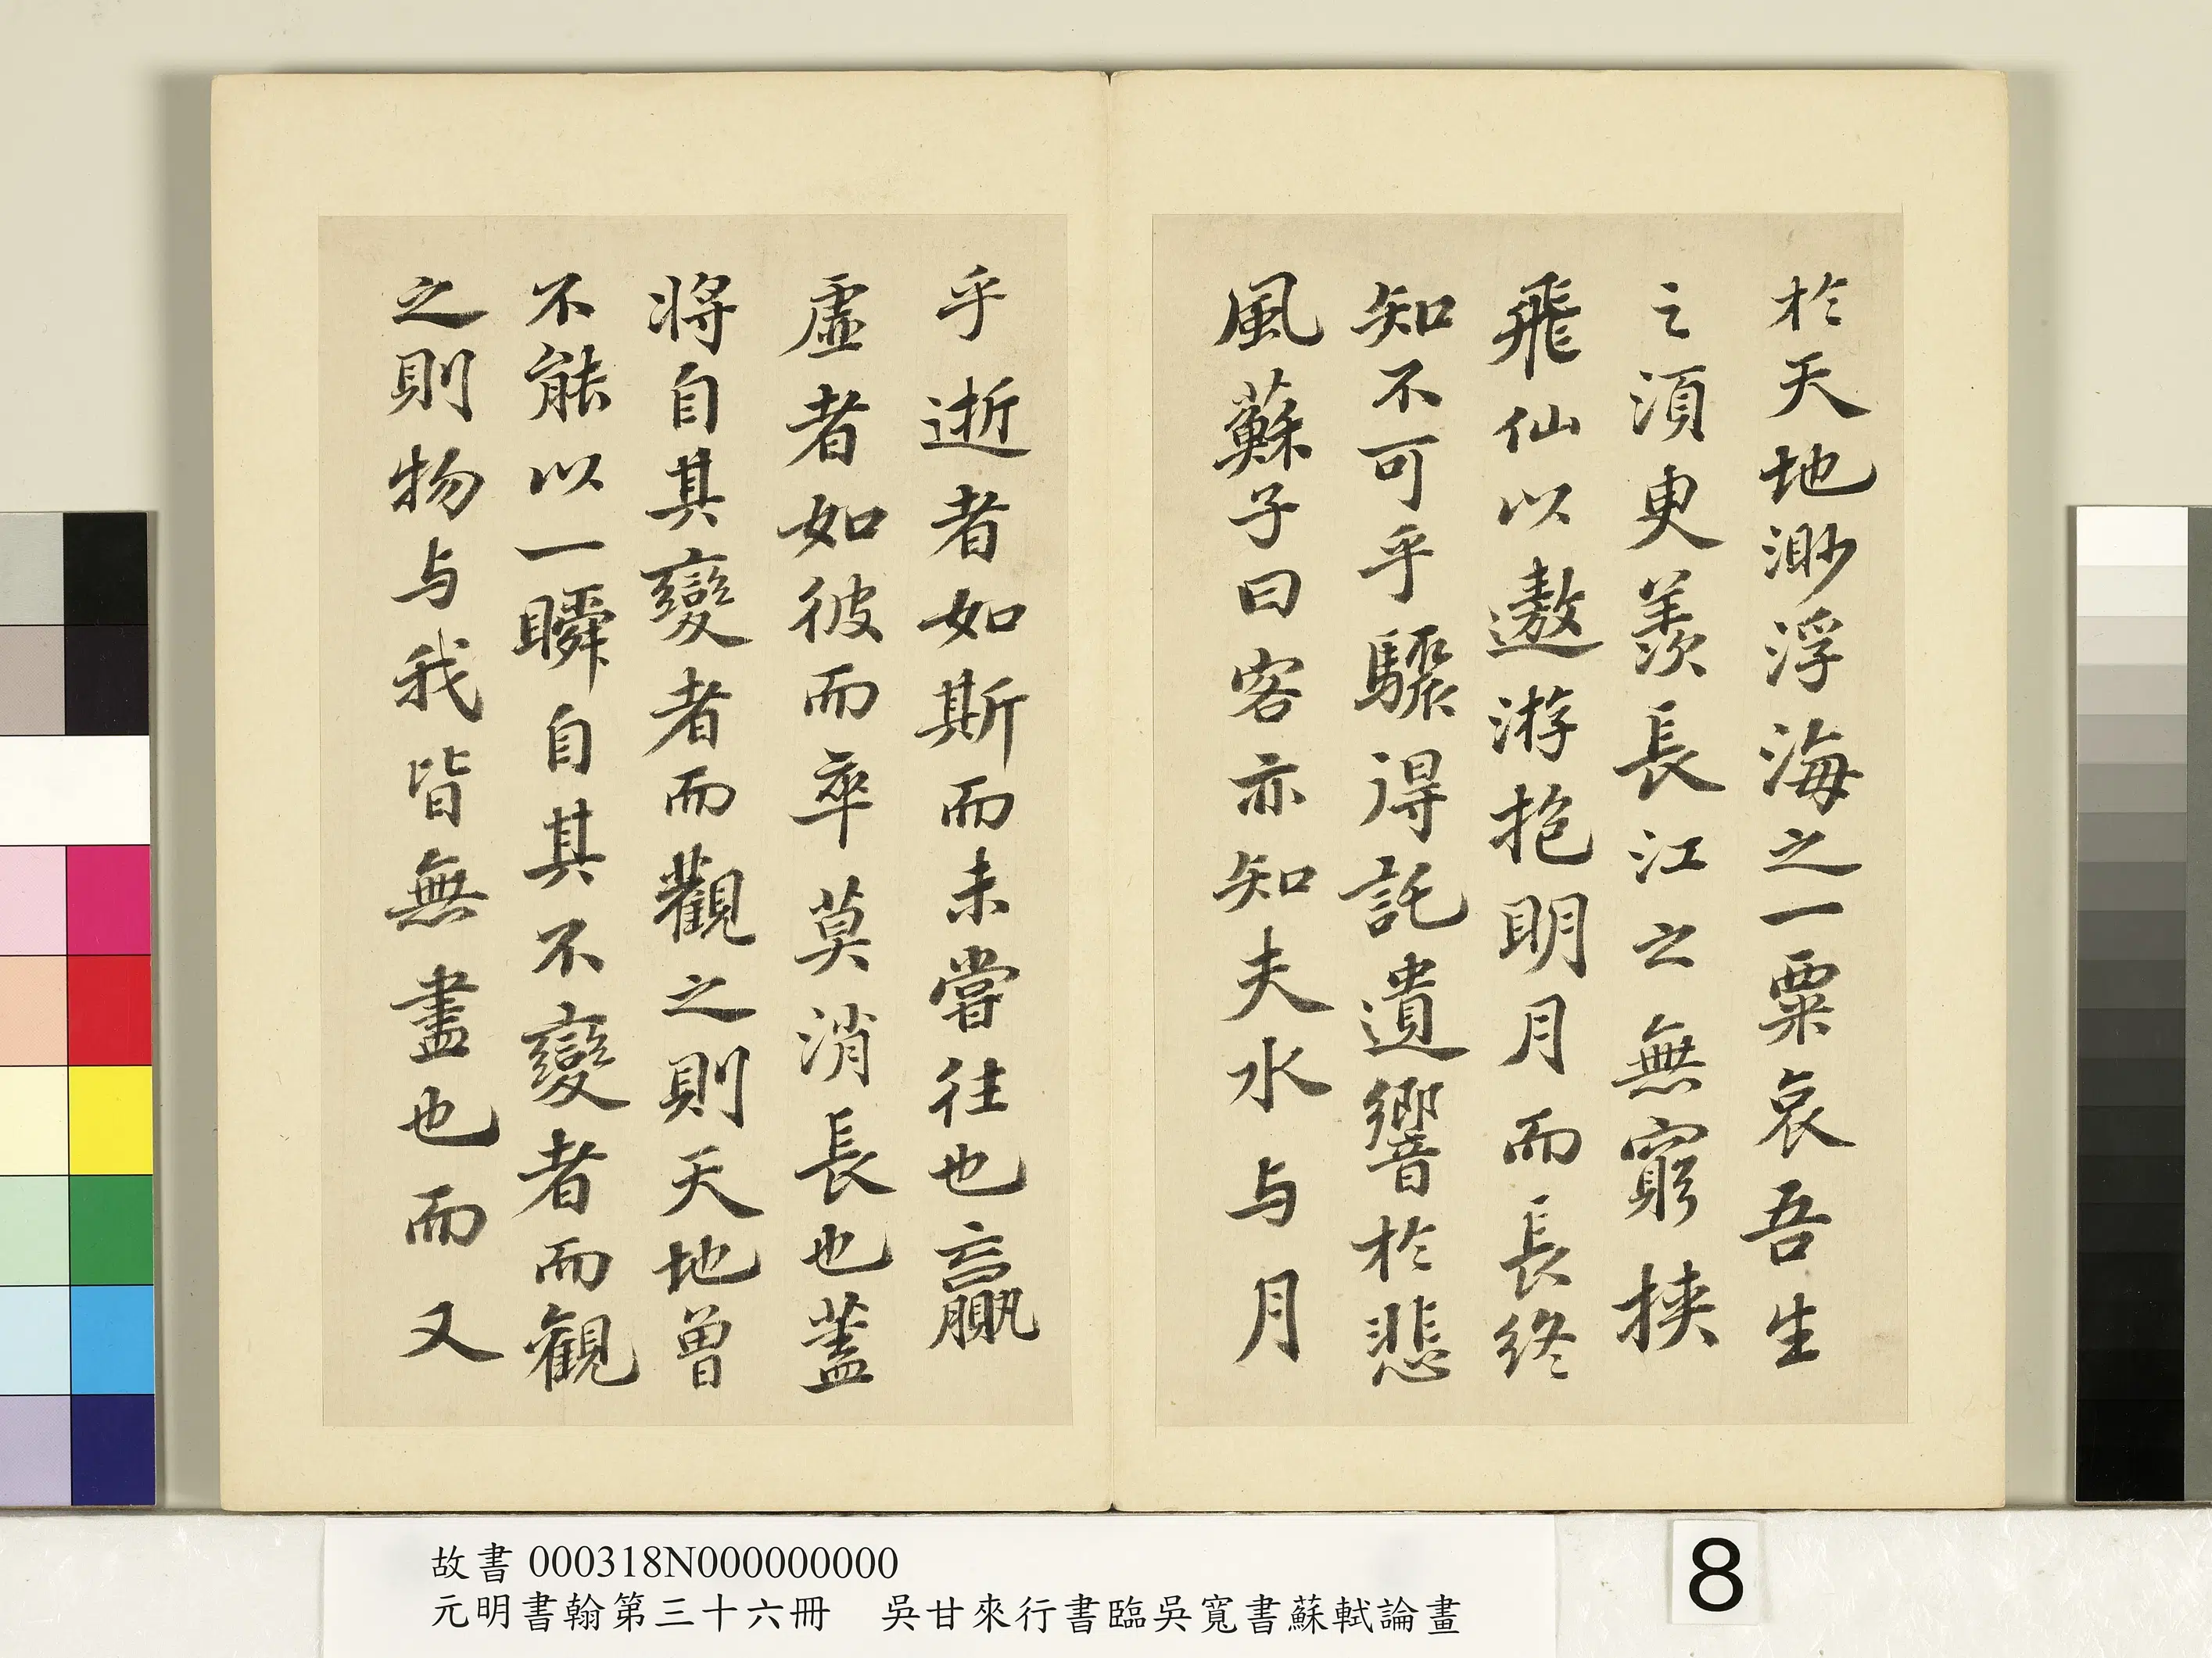 於天地渺浮海之一粟哀吾生
之須臾羨長江之無窮挾
飛仙以遨游抱明月而長終
知不可乎驟得託遺響於悲
風蘇子曰客亦知夫水与月
乎逝者如斯而未嘗往也贏
虛者如彼而卒莫消長也蓋
将自其變者而觀之則天地曾
不能以一瞬自其不變者而觀
之則物与我皆無盡也而又
故書 000318N000000000
元明書翰第三十六冊 吳甘來行書臨吳寬書蘇軾論畫
8